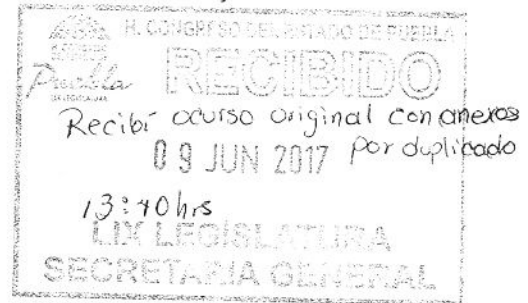 H. CONGRESO DEL ESTADO DE PUEBLA
Puebla
RECIBIDO
Recibí ocurso original con anexos
09 JUN 2017 por duplicado
13:40hrs
LIX LEGISLATURA
SECRETARIA GENERAL